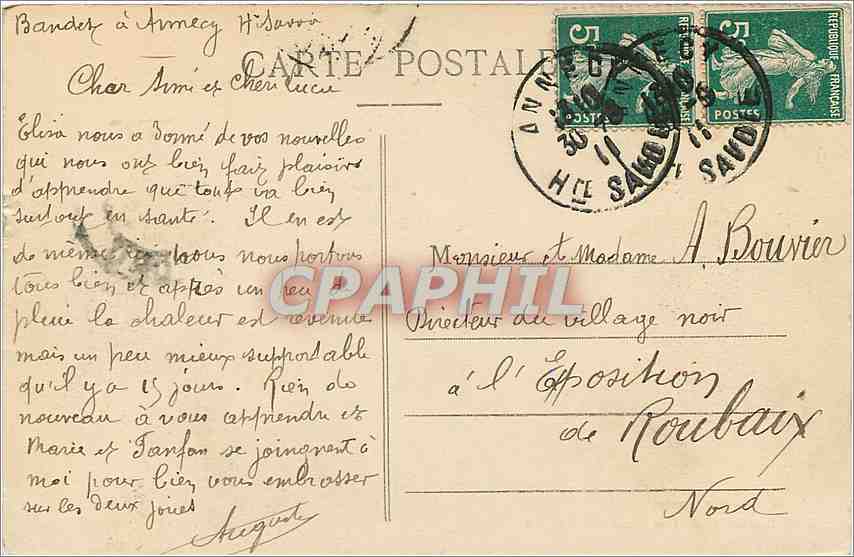 Bandet à Annecy Hte Savoie
CARTE POSTALE
Cher Aimé et Chère Lucie
Elisa nous a donné de vos nouvelles
qui nous ont bien fait plaisirs
d'apprendre que tous va bien
surtout en santé. Il en est
de même ici nous nous portons
tous bien et après un peu de
pluie la chaleur est revenue
mais un peu mieux supportable
qu'il y a 15 jours. Rien de
nouveau à vous apprendre et
Marie et Fanfan se joingnent à
moi pour bien vous embrasser
sur les deux joues
Auguste
5c
REPUBLIQUE FRANÇAISE
POSTES
5c
REPUBLIQUE FRANÇAISE
POSTES
ANNECY
30
11
HTE SAVOIE
11
SAVOIE
Monsieur et Madame A. Bouvier
Directeur du village noir
à l'Exposition
de Roubaix
Nord
CPAPHIL